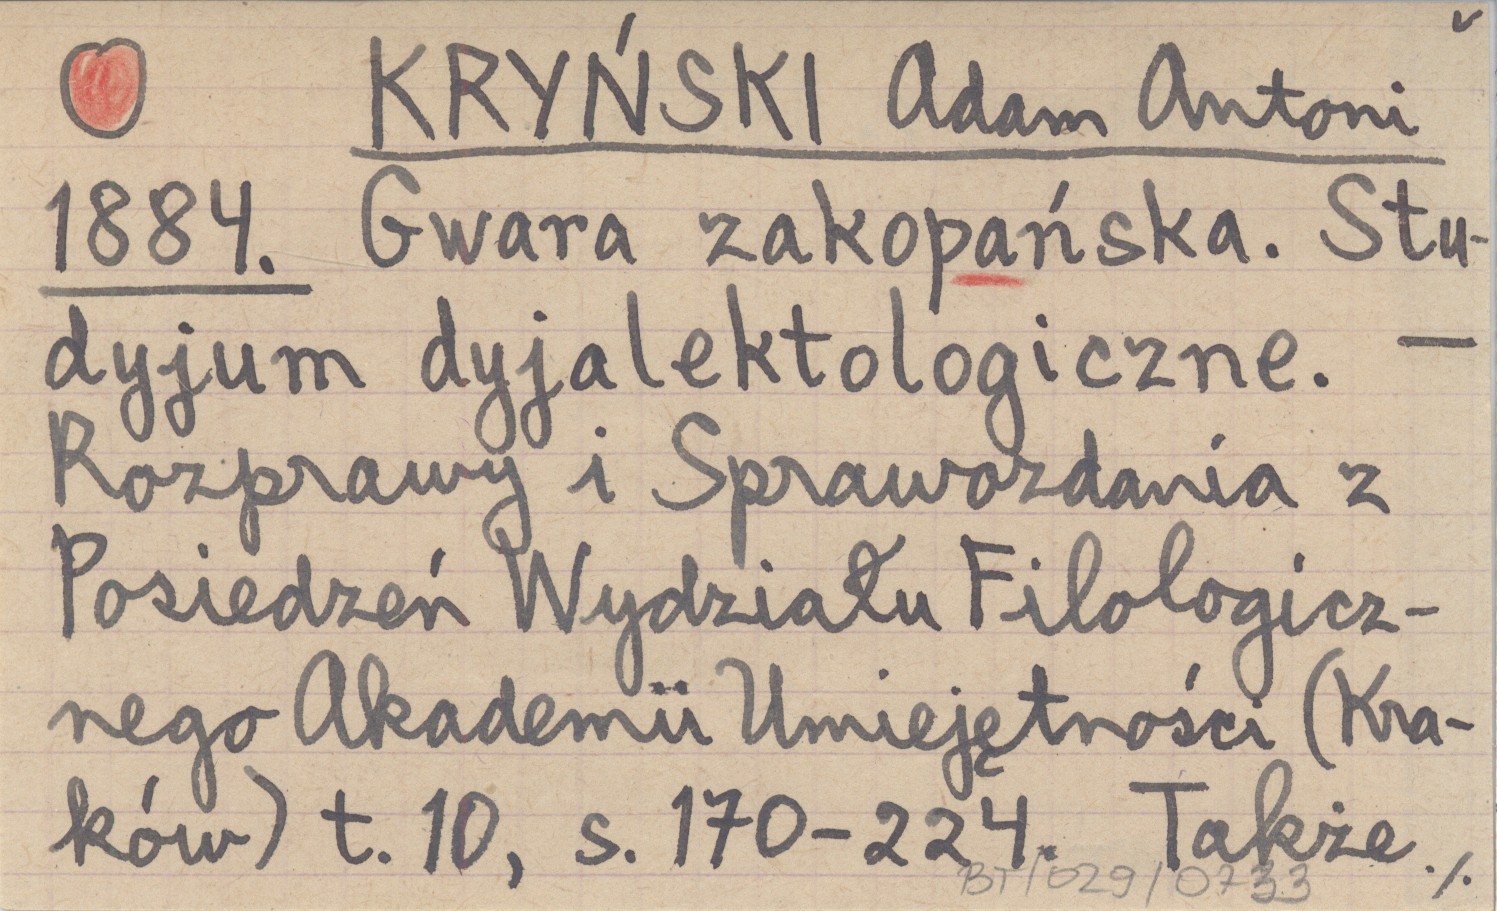 KRYŃSKI Adam Antoni
1884. Gwara zakopańska. Stu-
dyjum dyjalektologiczne. —
Rozprawy i Sprawozdania z
Posiedzeń Wydziału Filologicz-
nego Akademii Umiejętności (Kra-
ków) t. 10, s. 170-224. Także ./.
BT/029/0733